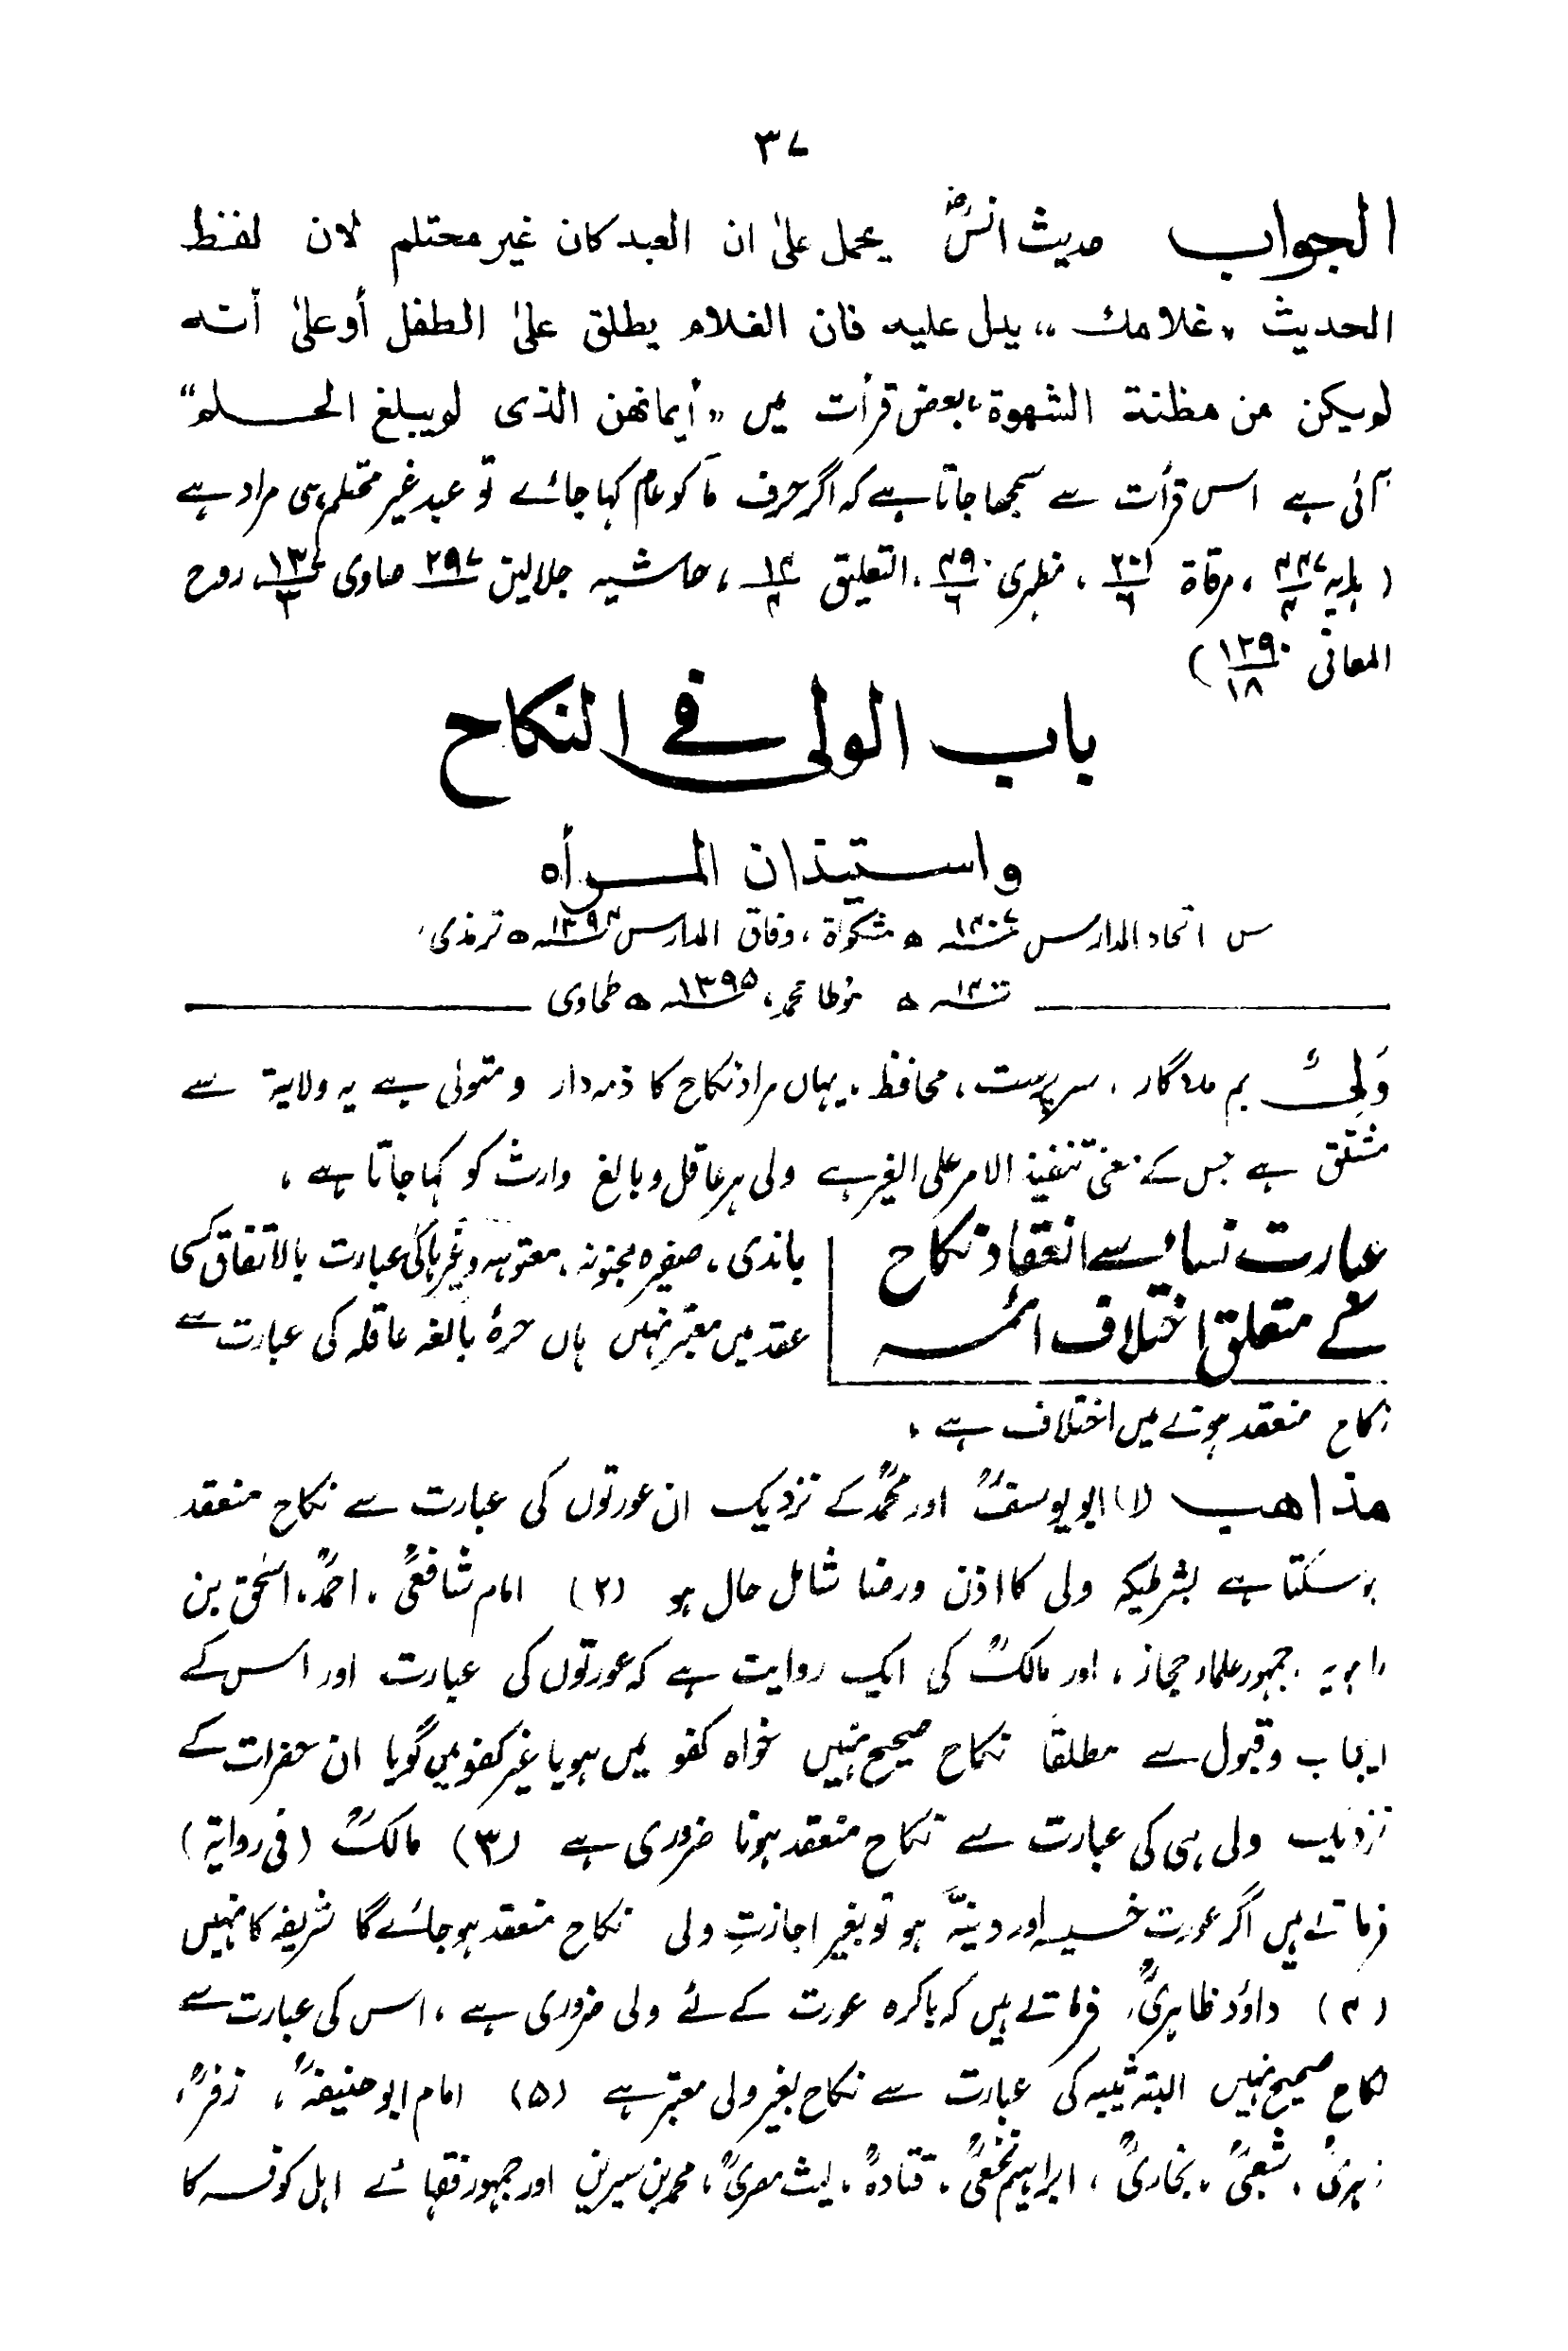 ۳۷
الجواب حدیث انسؓ یحمل علیٰ ان العبد کان غیر محتلم لان لفظ
الحدیث ,,غلامك،، یدل علیہ فان الغلام یطلق علیٰ الطفل أو علیٰ أنه
لو یکن من مظنة الشهوة، بعض قرأت میں ,,أیمانهن الذی لو یبلغ الحلم“
آئی ہے اس قرأت سے سمجھا جاتا ہے کہ اگر حرف مَا کو عام کہا جائے تو عبد غیر محتلم ہی مراد ہے
( ہدایہ ۴۴۷/۴ ، مرقاة ۲۰۱/۶ ، مظہری ۴۹۰/۶ ، التعلیق ۱۴/۴ ، حاشیہ جلالین ۲۹۷ صاوی ۱۳۷/۳، روح
المعانی ۱۲۹۰/۱۸ )
باب الولی فی النکاح
واستیذان المرأه
س اتحاد المدارس ۱۴۰۷ھ مشکوٰة ، وفاق المدارس ۱۳۹۴ھ ترمذی،
۱۴۰۰ھ مؤطا محمد، ۱۳۹۵ھ طحاوی
وَلِیٌّ بم مددگار ، سرپرست ، محافظ ، یہاں مراد نکاح کا ذمہ دار و متولی ہے یہ ولایة سے
مشتق ہے جس کے معنیٰ تنفیذ الامر علی الغیر ہے ولی ہر عاقل و بالغ وارث کو کہا جاتا ہے ،
عبارت نساء سے انعقاد نکاح
کے متعلق اختلاف ائمہ
باندی ، صغیرہ مجنونہ ، معتوہہ وغیرہا کی عبارت بالاتفاق کسی
عقد میں معتبر نہیں ہاں حرۂ بالغہ عاقلہ کی عبارت سے
نکاح منعقد ہونے میں اختلاف ہے ،
مذاهب (۱) ابویوسفؒ اور محمدؒ کے نزدیک ان عورتوں کی عبارت سے نکاح منعقد
ہوسکتا ہے بشرطیکہ ولی کا اذن ورضا شامل حال ہو (۲) امام شافعیؒ ، احمدؒ ، اسحٰق بن
راہویہ ، جمہور علماء حجاز ، اور مالکؒ کی ایک روایت ہے کہ عورتوں کی عبارت اور اس کے
ایجاب وقبول سے مطلقاً نکاح صحیح نہیں خواہ کفو میں ہو یا غیر کفو میں گویا ان حضرات کے
نزدیک ولی ہی کی عبارت سے نکاح منعقد ہونا ضروری ہے (۳) مالکؒ (فی روایة)
فرماتے ہیں اگر عورت خسیسہ اور دنیّہ ہو تو بغیر اجازتِ ولی نکاح منعقد ہو جائے گا شریفہ کا نہیں
(۴) داؤد ظاہریؒ، فرماتے ہیں کہ باکرہ عورت کے لئے ولی ضروری ہے ، اس کی عبارت سے
نکاح صحیح نہیں البتہ ثیبہ کی عبارت سے نکاح بغیر ولی معتبر ہے (۵) امام ابوحنیفہؒ ، زفرؒ ،
زہریؒ ، شعبیؒ ، بخاریؒ ، ابراہیم نخعیؒ ، قتادہؒ ، لیث مصریؒ ، محمد بن سیرین اور جمہور فقہائے اہل کوفہ کا